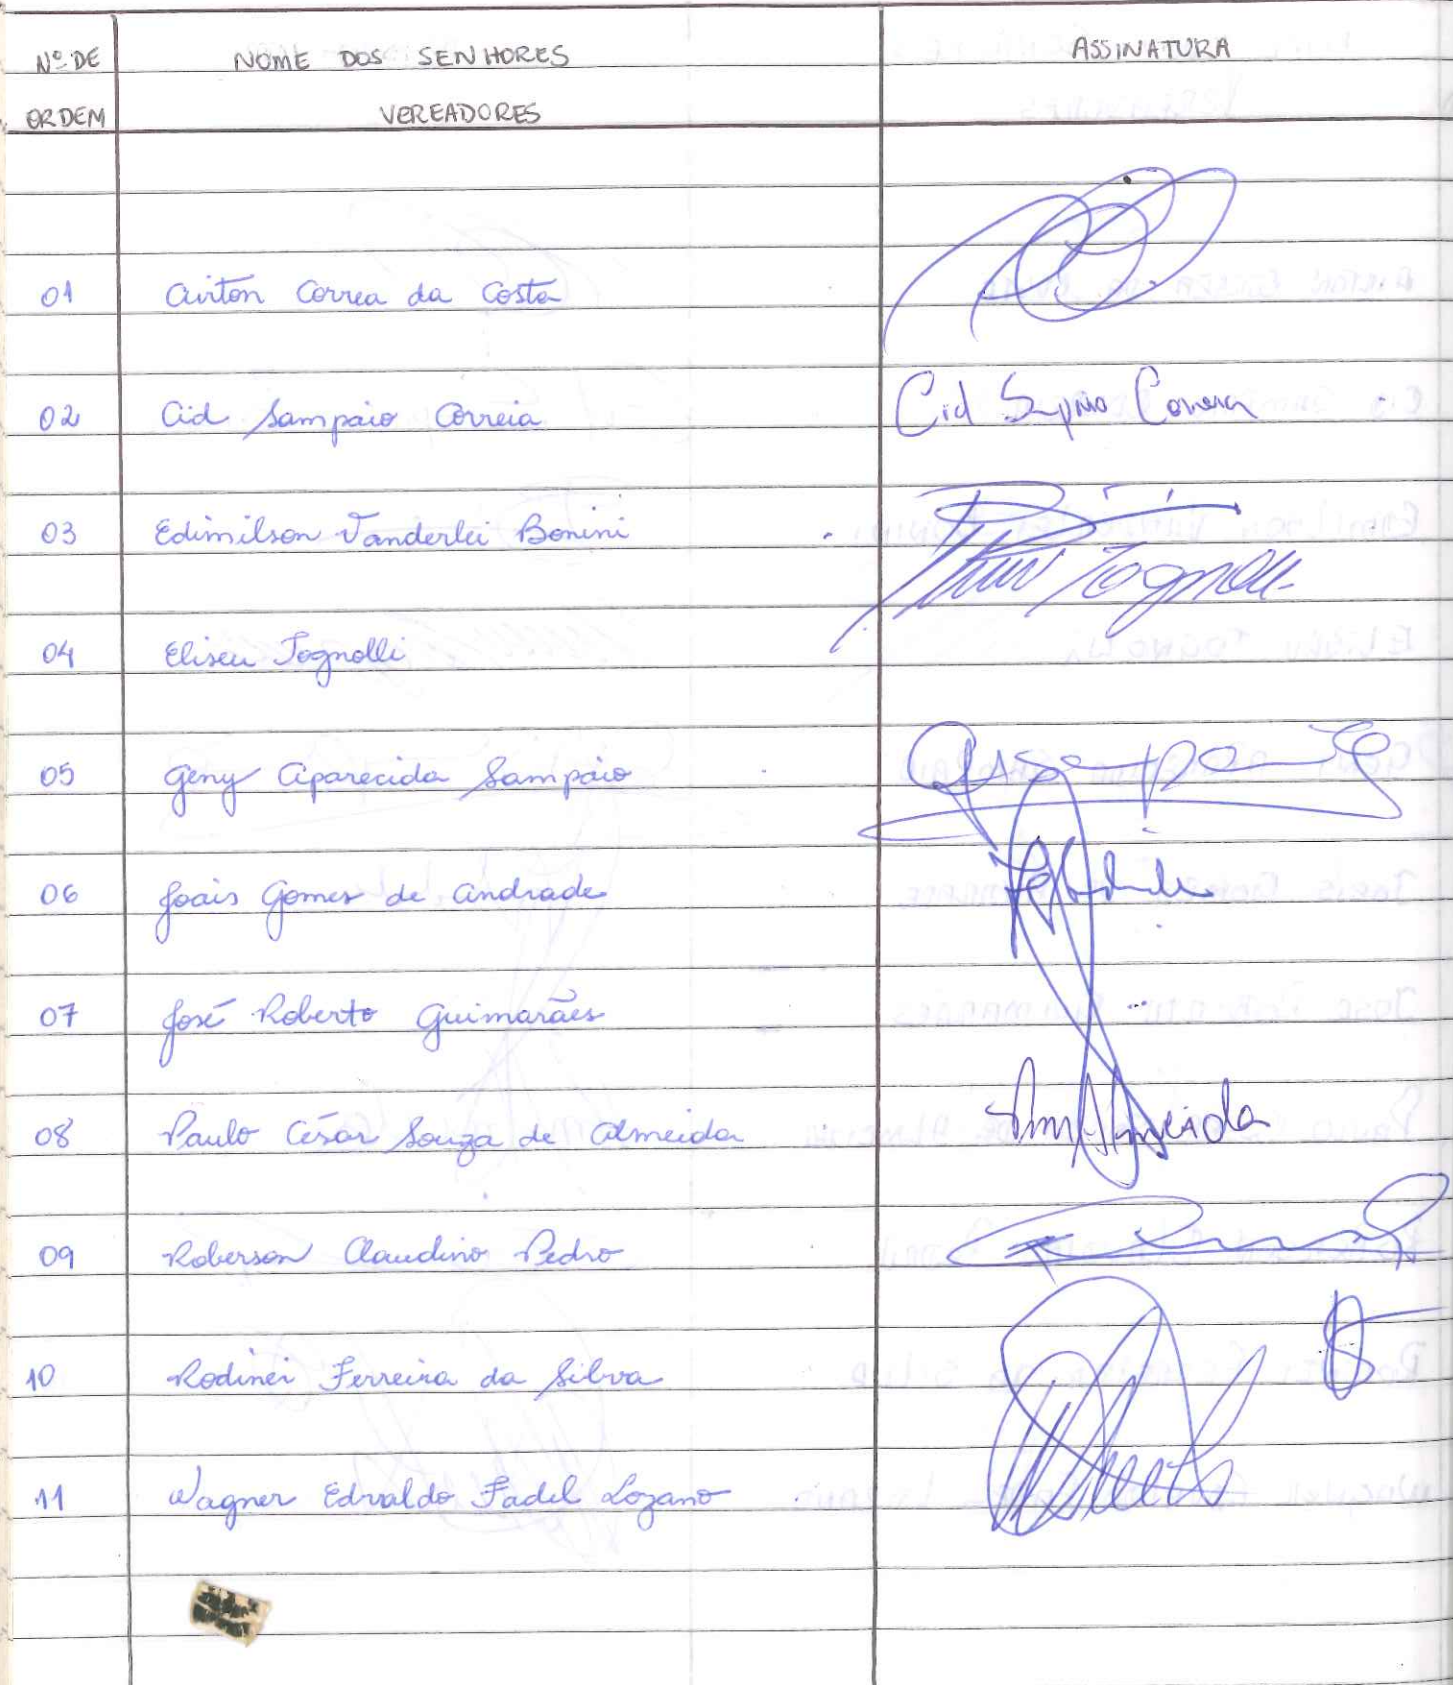 Nº DE NOME DOS SENHORES ASSINATURA
ORDEM VEREADORES
01 Airton Correa da Costa
02 Cid Sampaio Correia Cid Sampaio Correia
03 Edimilson Vanderlei Bonini
04 Eliseu Tognolli Tognolli
05 Geny Aparecida Sampaio
06 Joais Gomes de Andrade
07 José Roberto Guimarães
08 Paulo César Souza de Almeida Almeida
09 Roberson Claudino Pedro
10 Rodinei Ferreira da Silva
11 Wagner Edvaldo Fadel Lozano